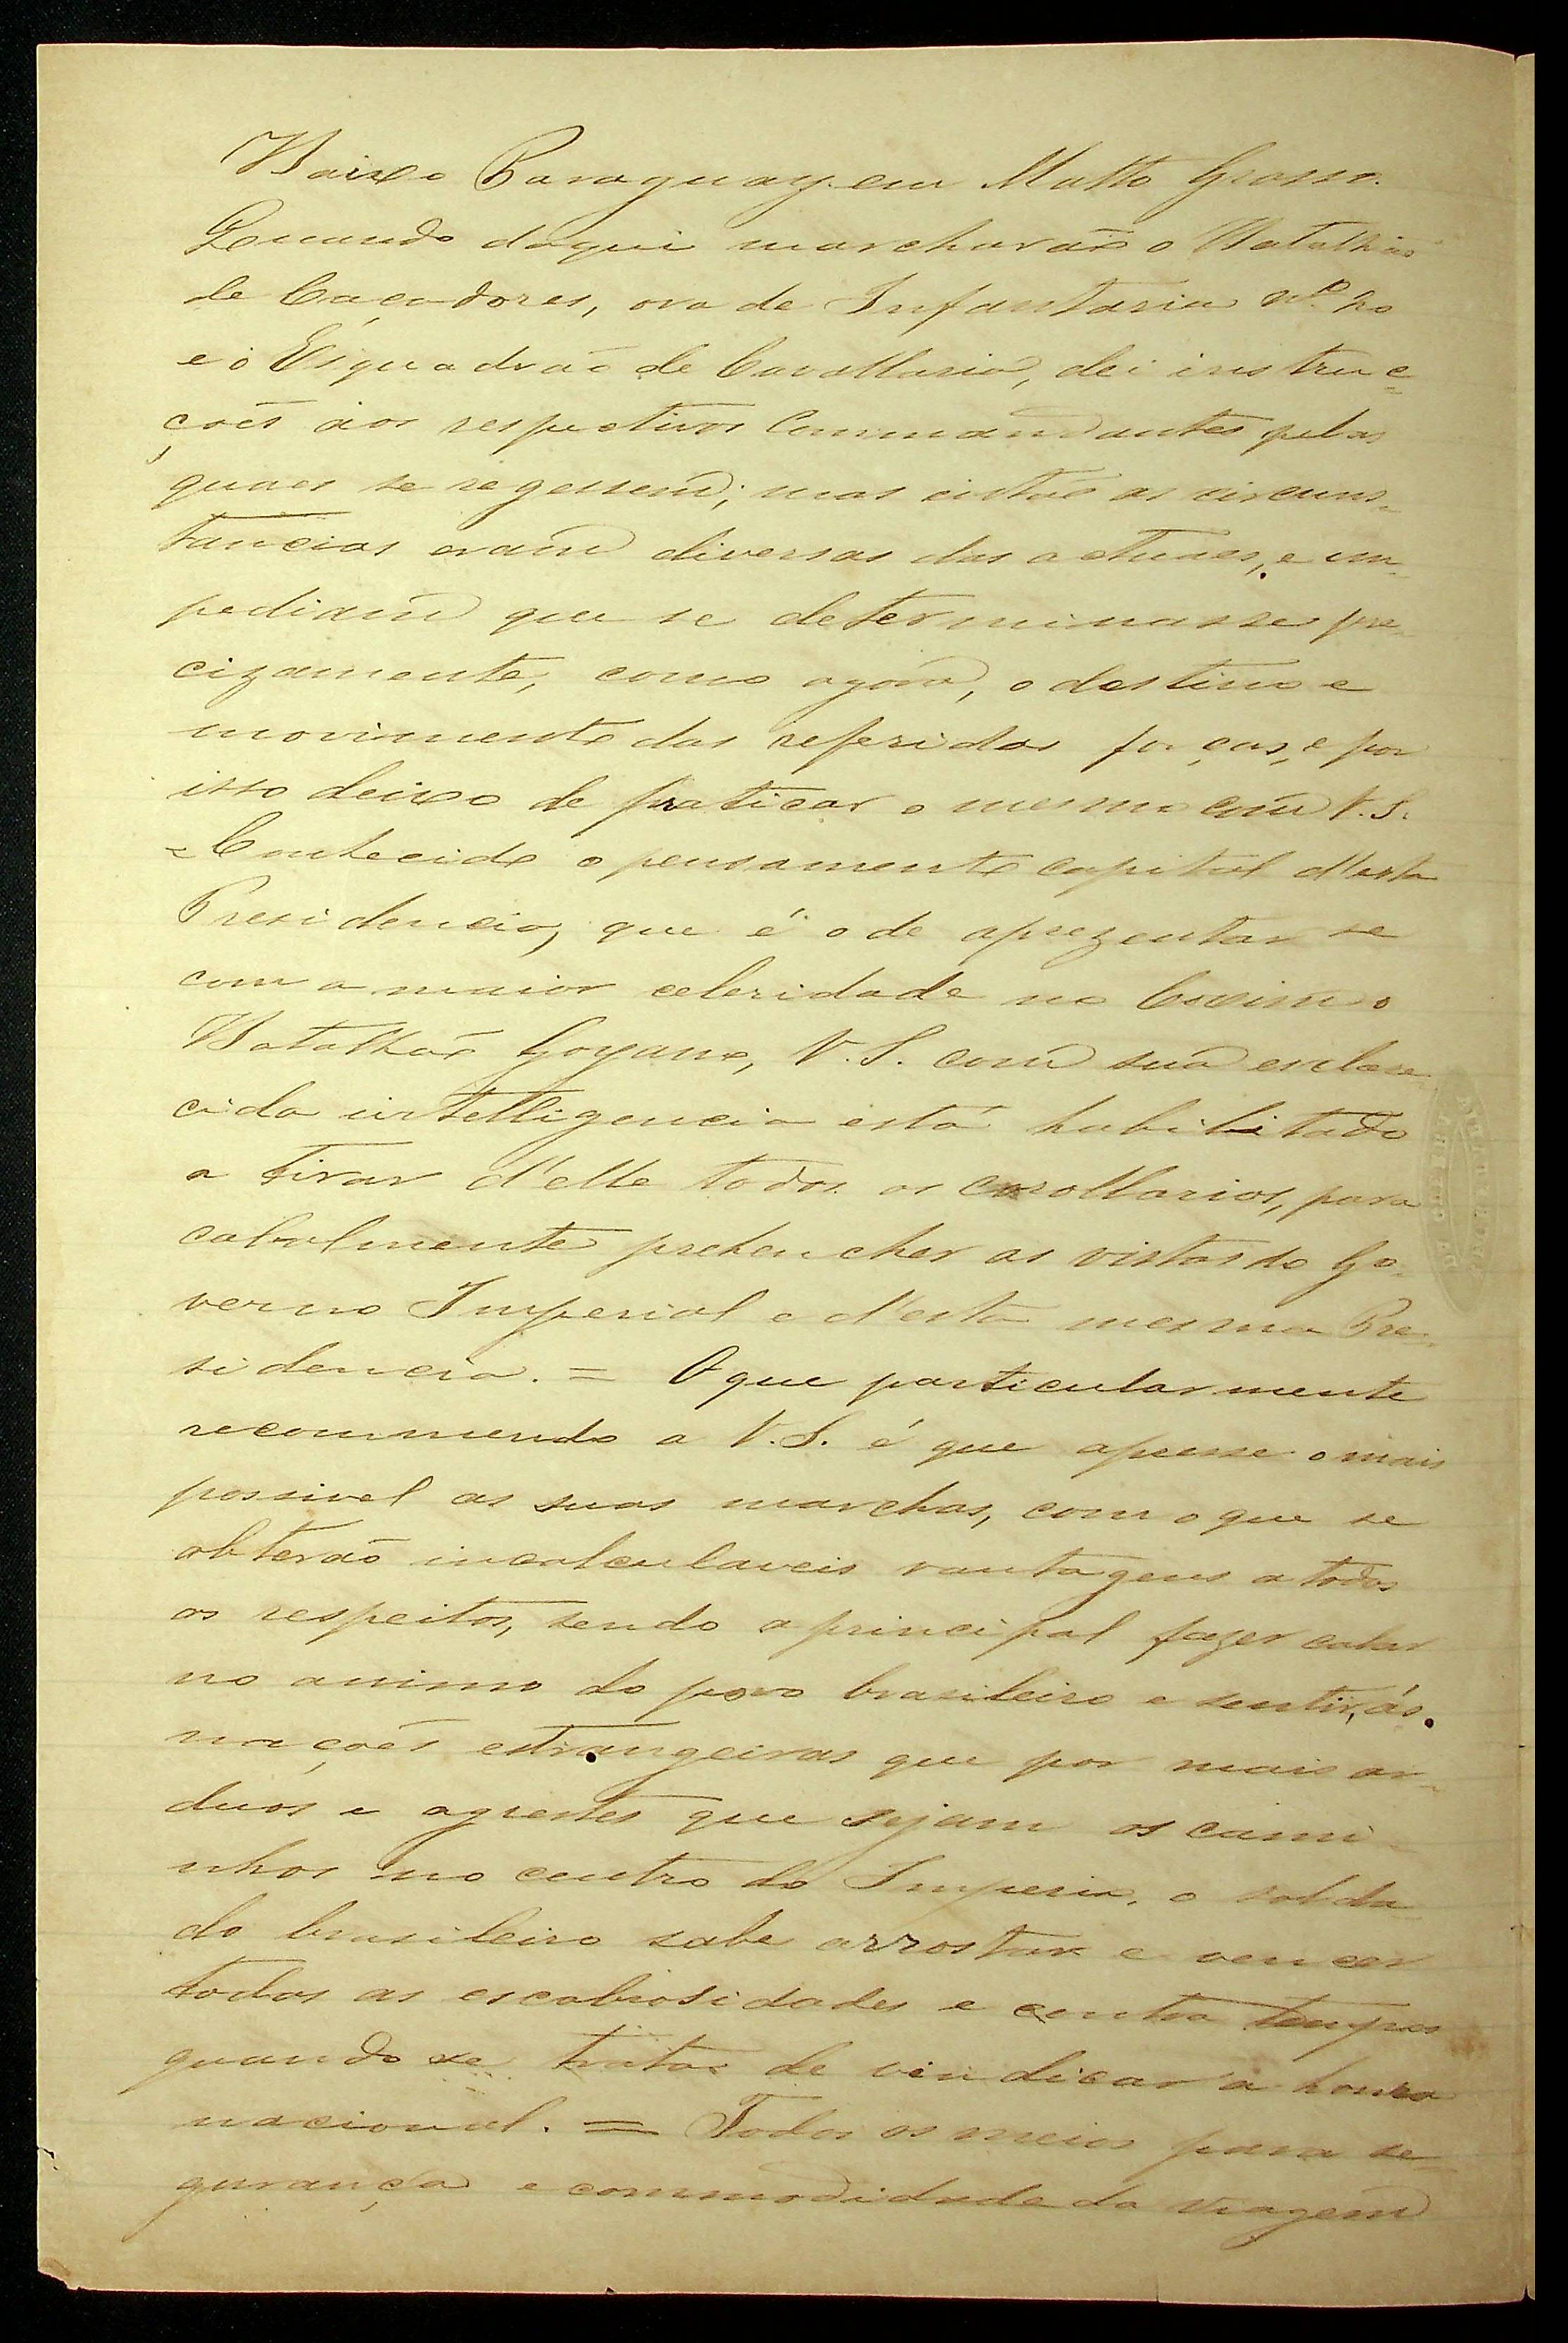 Baixo Paraguay em Matto Grosso.
Quando daqui marcharão o Batalhão
de Caçadores, ora de Infantaria Nº 20
e o Esquadrão de Cavallaria, dei instruc=
ções aos respectivos Commandantes pelas
quaes se regessem; mas então as circuns=
tancias eram diversas das actuaes, e im=
pediam que se determinasse pre=
cizamente, como agora, o destino e
movimento das referidas forças, e por
isso deixo de praticar o mesmo com V.S.
= Conhecido o pensamento capital d'esta
Presidencia, que é o de aprezentar se
com a maior celeridade no Coxim o
Batalhão Goyano, V.S. com sua esclare
cida intelligencia está habilitado
a tirar d'elle todos os corollarios, para
cabalmente prehencher as vistas do Go=
verno Imperial e d'esta mesma Pre=
sidencia. = O que particularmente
recommendo a V.S. é que apresse o mais
possivel as suas marchas, com o que se
obterão incalculaveis vantagens a todos
os respeitos, sendo a principal fazer calar
no animo do povo brasileiro e sentir, ás
nações estrangeiras que por mais ar=
duos e agrestes que sejam os cami=
nhos no centro do Imperio, o solda
do brasileiro sabe arrostar e vencer
todas as escabrosidades e contra tempos
quando se trata de vindicar a honra
nacional. = Todos os meios para se=
gurança e commodidade da viagem